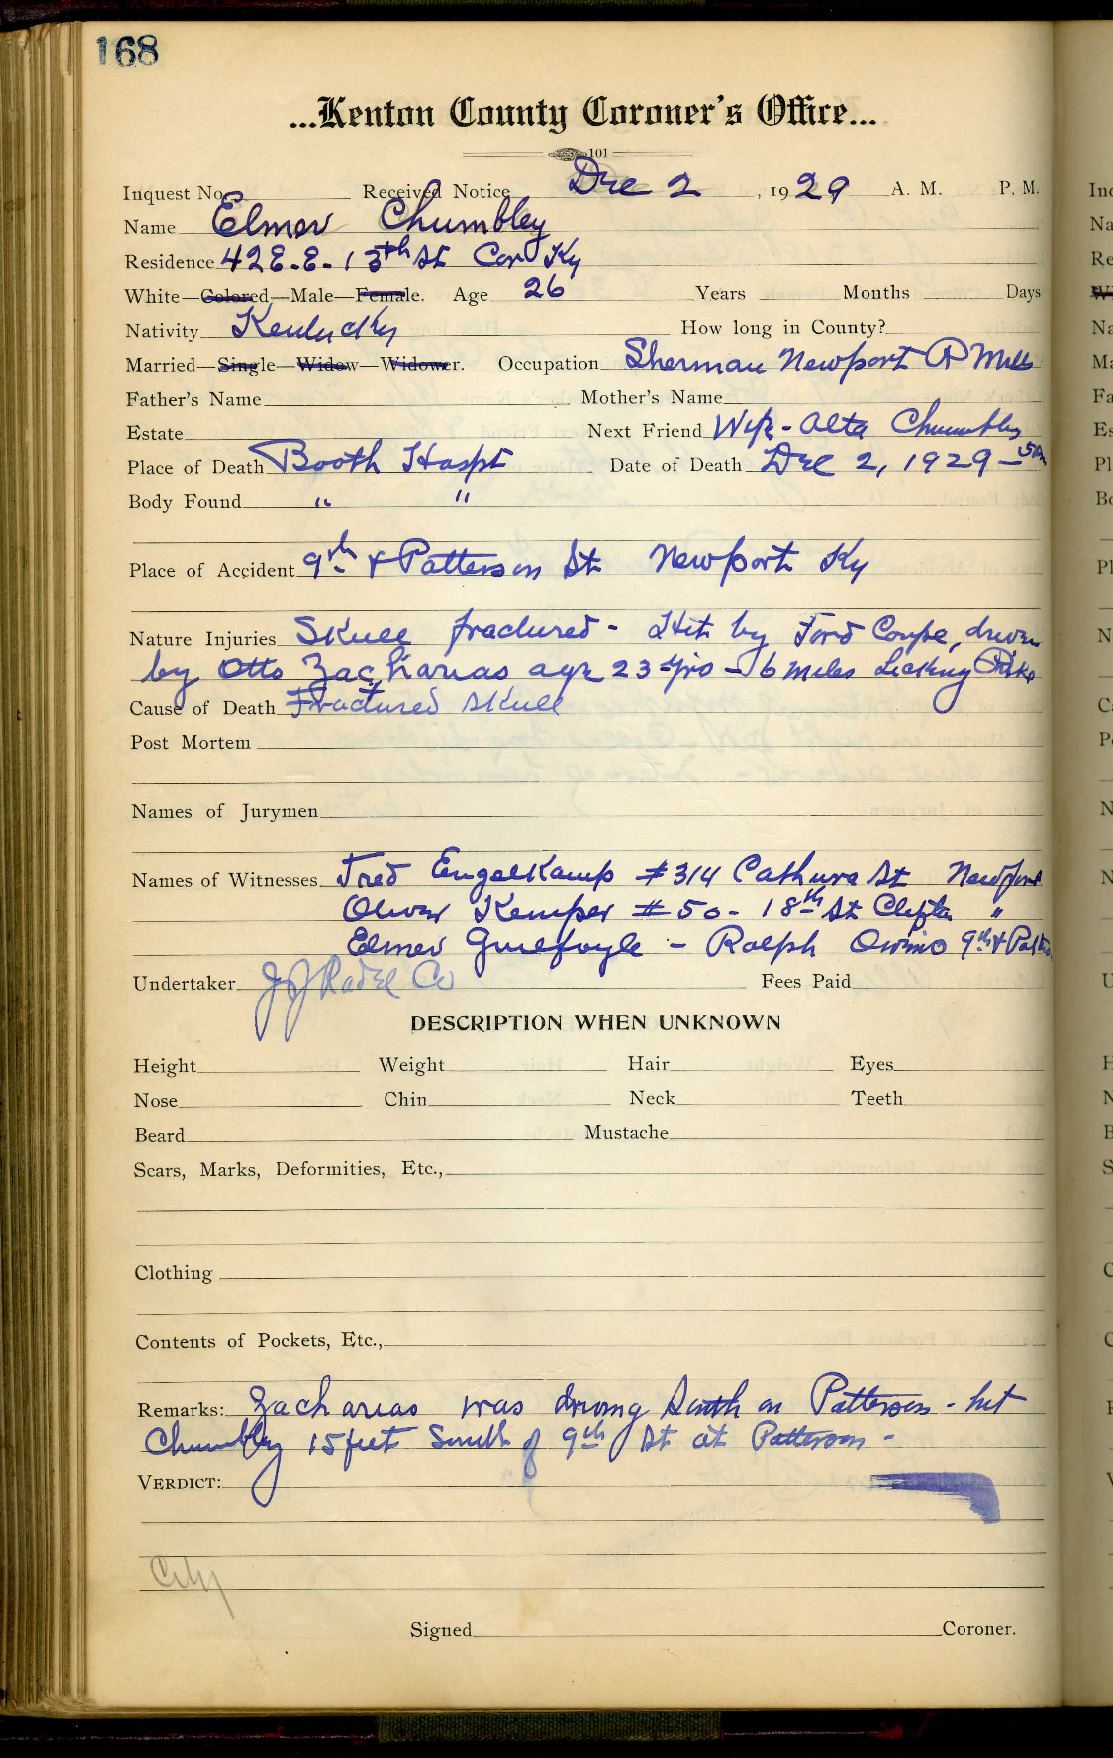 168
...Kenton County Coroner's Office...
101
Inquest No. Received Notice Dec 2, 1929 A. M. P. M.
Name Elmer Chumbley
Residence 428 E. 13th St Cov Ky
White—Colored—Male—Female. Age 26 Years Months Days
Nativity Kentucky How long in County?
Married—Single—Widow—Widower. Occupation Sherman Newport R Mill
Father's Name Mother's Name
Estate Next Friend Wife - Alta Chumbley
Place of Death Booth Hospt Date of Death Dec 2, 1929 -
Body Found " "
Place of Accident 9th & Patterson St Newport Ky
Nature Injuries Skull fractured - Hit by Ford Coupe, driven
by Otto Zacharias age 23 yrs - 6 miles Licking Pike
Cause of Death Fractured Skull
Post Mortem
Names of Jurymen
Names of Witnesses Fred Engelkamp #314 St Newport
Oliver Kemper #50 - 18th St Clifton "
Elmer Guilfoyle - Ralph 9th & Patt
Undertaker J J Radel Co Fees Paid
DESCRIPTION WHEN UNKNOWN
Height Weight Hair Eyes
Nose Chin Neck Teeth
Beard Mustache
Scars, Marks, Deformities, Etc.,
Clothing
Contents of Pockets, Etc.,
Remarks: Zacharias was driving South on Patterson - hit
Chumbley 15 feet South of 9th St at Patterson -
VERDICT:
City
Signed Coroner.